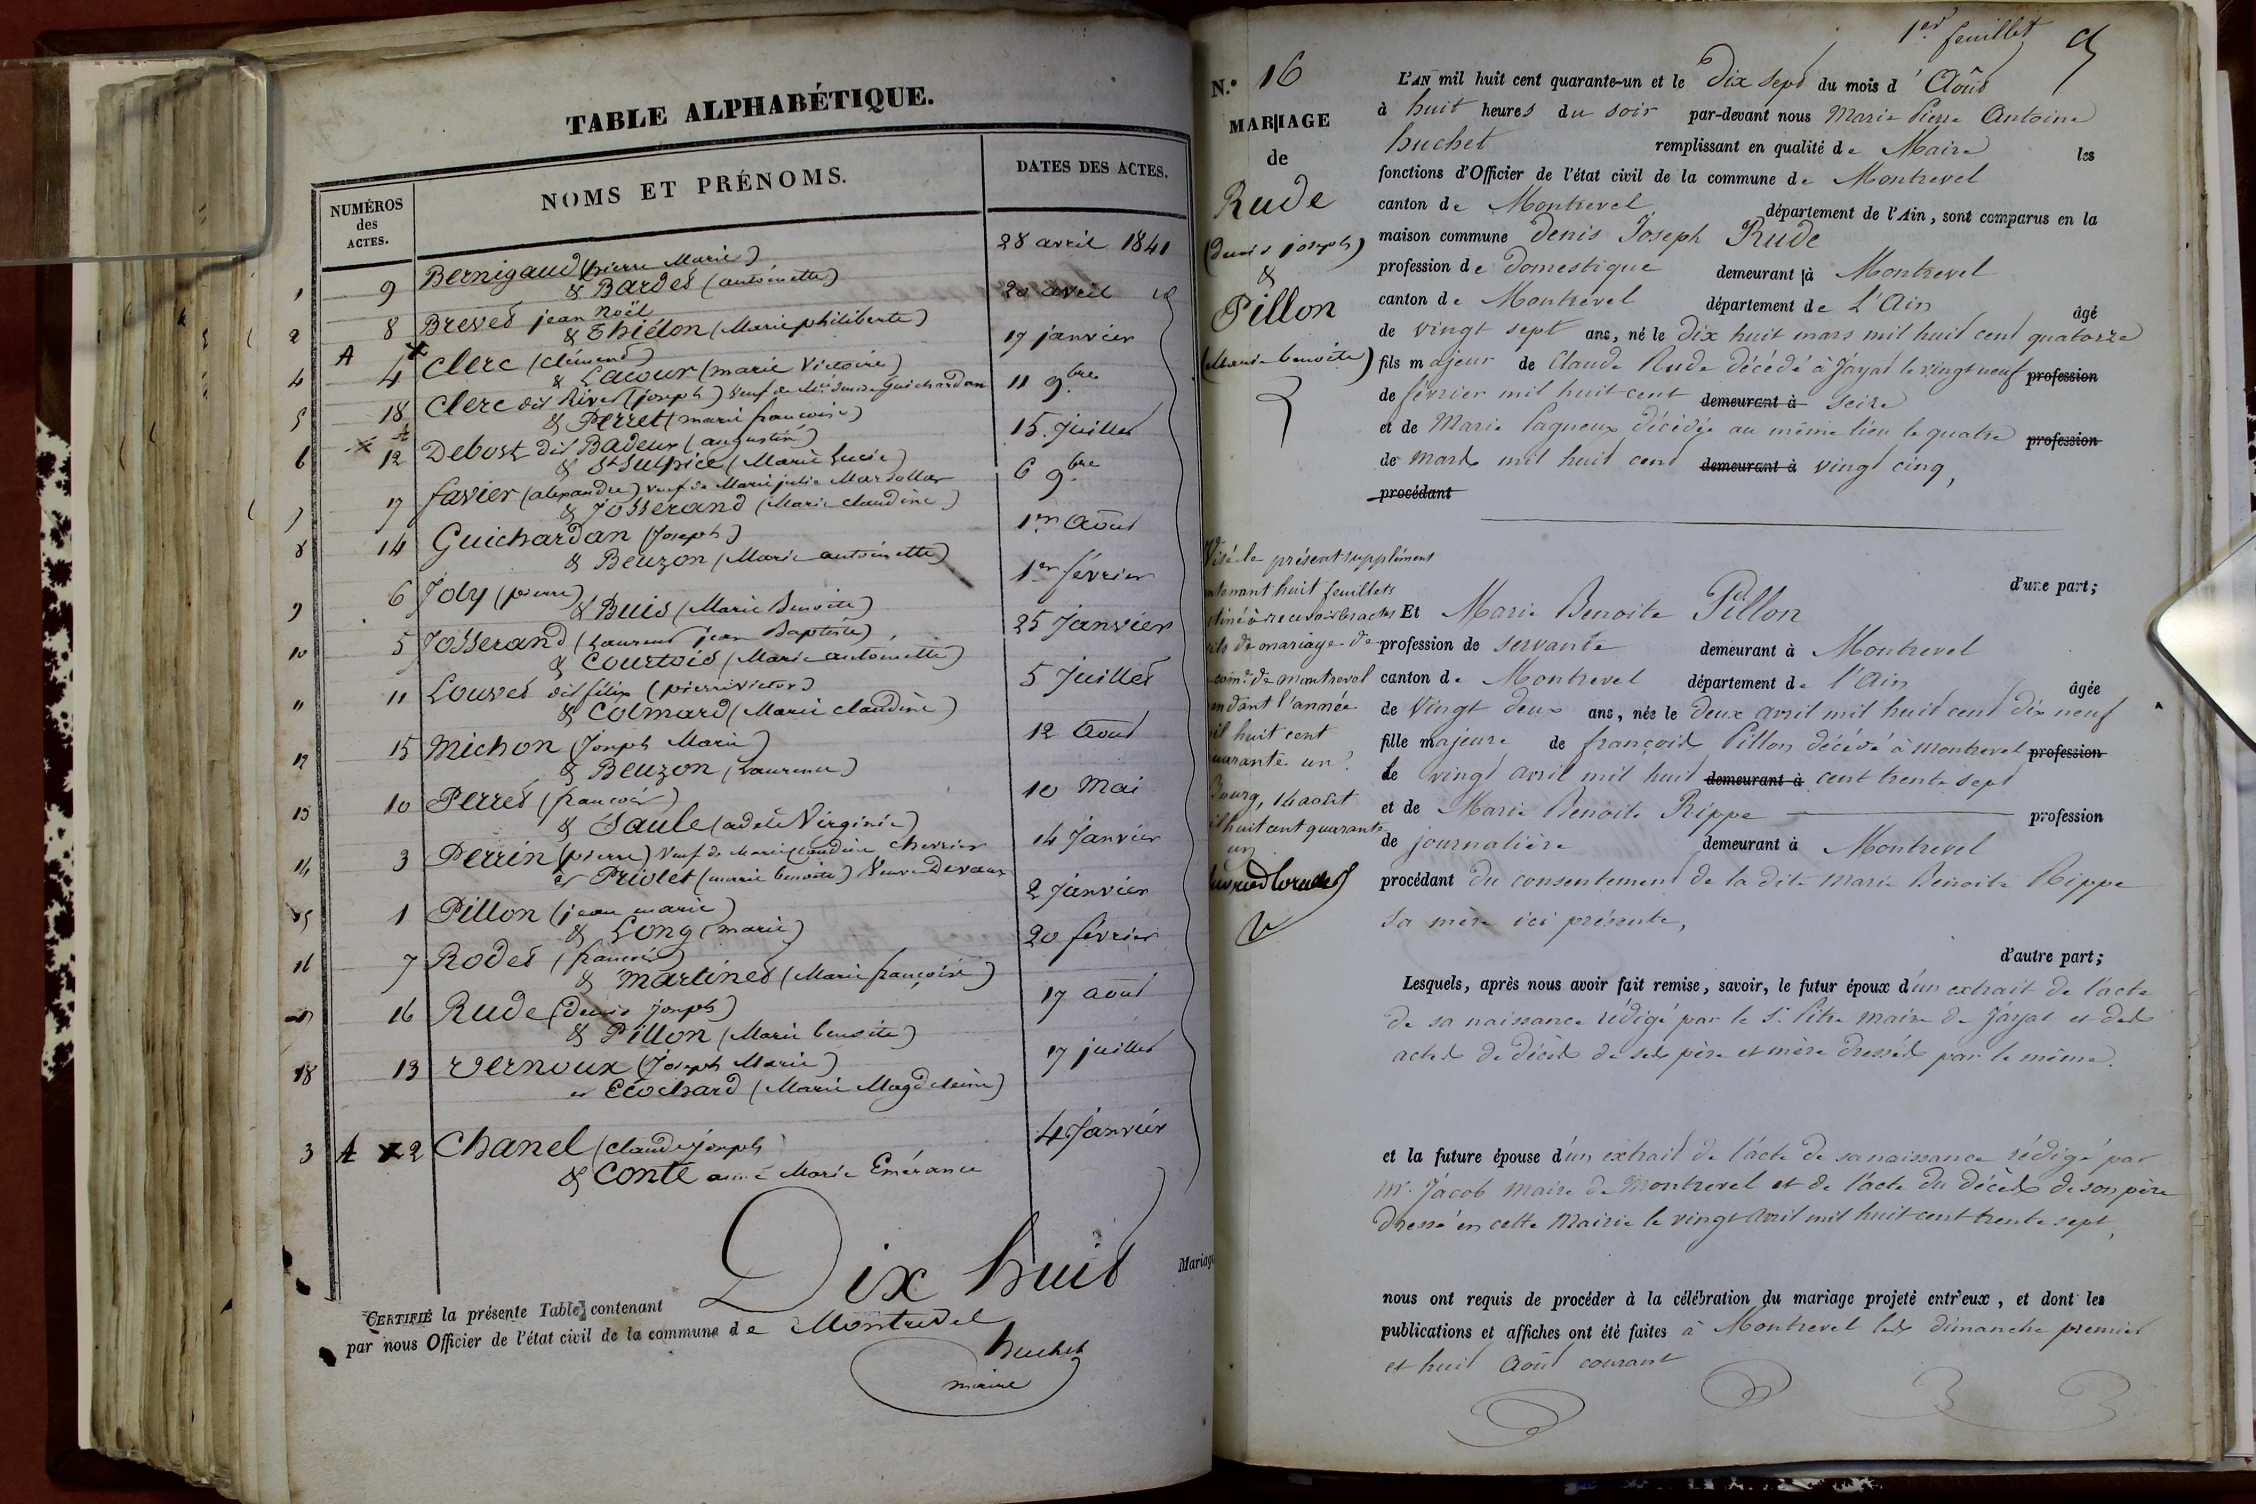 TABLE ALPHABÉTIQUE.
NUMÉROS des ACTES.
NOMS ET PRÉNOMS.
DATES DES ACTES.
1 9 Bernigaud (pierre Marie) 28 avril 1841
& Bardet (antoinette)
2 8 Brevet jean Noël 20 avril id
& Thiélon (Marie philiberte)
A 4 4 Clerc (Clément) 19 janvier
& Lacour (marie Victoire)
5 18 Clerc dit Rivet (joseph) Veuf de Mie Louise Guichardan 11 9.bre
& Perret (marie françoise)
6 12 Debost dit Badeur (augustin) 15 Juillet
& St Sulpice (Marie Lucie)
7 17 favier (alexandre) veuf de Marie julie Marsollat 6 9.bre
& Josserand (Marie claudine)
8 14 Guichardan (Joseph) 1er Août
& Beuzon (Marie antoinette)
9 6 Joly (pierre) 1er février
& Buis (Marie Benoite)
10 5 Josserand (Laurent jean Baptiste) 25 Janvier
& Courtois (Marie antoinette)
11 11 Louvet dit félix (pierre victor) 5 Juillet
& Colmard (Marie claudine)
12 15 Michon (Joseph Marie) 12 Août
& Beuzon (Laurence)
13 10 Perret (françois) 10 Mai
& Saule (adele Virginie)
14 3 Perrin (pierre) Veuf de Marie Claudine Chevrier 14 Janvier
et Priolet (marie benoite) Veuve Devaux
15 1 Pillon (jean marie) 2 Janvier
& Long (marie)
16 7 Rodet (françois) 20 février
& Martinet (Marie françoise)
16 Rude (Denis Joseph) 17 août
& Pillon (Marie benoite)
18 13 Vernoux (Joseph Marie) 17 juillet
et Ecochard (Marie Magdeleine)
3 A 2 Chanel (Claude joseph) 4 Janvier
& Conte anne Marie Emérance
CERTIFIÉ la présente Table contenant Dix huit Mariages
par nous Officier de l'état civil de la commune de Montrevel
huchet
maire
1er feuillet
N.° 16
MARIAGE
de
Rude
(denis joseph)
&
Pillon
(Marie benoite)
L'AN mil huit cent quarante-un et le Dix Sept du mois d'Août
à huit heures du soir par-devant nous Marie Pierre Antoine
huchet remplissant en qualité de Maire les
fonctions d'Officier de l'état civil de la commune de Montrevel
canton de Montrevel département de l'Ain, sont comparus en la
maison commune Denis Joseph Rude
profession de domestique demeurant à Montrevel
canton de Montrevel département de L'Ain âgé
de vingt sept ans, né le dix huit mars mil huit cent quatorze
fils majeur de Claude Rude décédé à Jayat le vingt neuf profession
de février mil huit cent demeurant à seize
et de Marie Pagneux décédée au même lieu le quatre profession
de mars mil huit cent demeurant à vingt cinq,
procédant
d'une part;
Visé le présent supplément
contenant huit feuillets
destiné à recevoir les actes
de mariage de
com.e de montrevel
pendant l'année
mil huit cent
quarante un.
Bourg, 14 août
mil huit cent quarante
un
Et Marie Benoite Pillon
profession de servante demeurant à Montrevel
canton de Montrevel département de l'Ain âgée
de Vingt deux ans, née le deux avril mil huit cent dix neuf
fille majeure de françois Pillon décédé à Montrevel profession
le vingt avril mil huit demeurant à cent trente sept
et de Marie Benoite Rippe profession
de journalière demeurant à Montrevel
procédant du consentement de la dite Marie Benoite Rippe
sa mère ici présente,
d'autre part;
Lesquels, après nous avoir fait remise, savoir, le futur époux d'un extrait de l'acte
de sa naissance rédigé par le Sr. Pitre maire de Jayat et des
actes de décès de ses père et mère dressés par le même.
et la future épouse d'un extrait de l'acte de sa naissance rédigé par
Mr. Jacob Maire de Montrevel et de l'acte du décès de son père
dressé en cette Mairie le vingt avril mil huit cent trente sept,
nous ont requis de procéder à la célébration du mariage projeté entr'eux, et dont les
publications et affiches ont été faites à Montrevel les dimanche premier
et huit Août courant